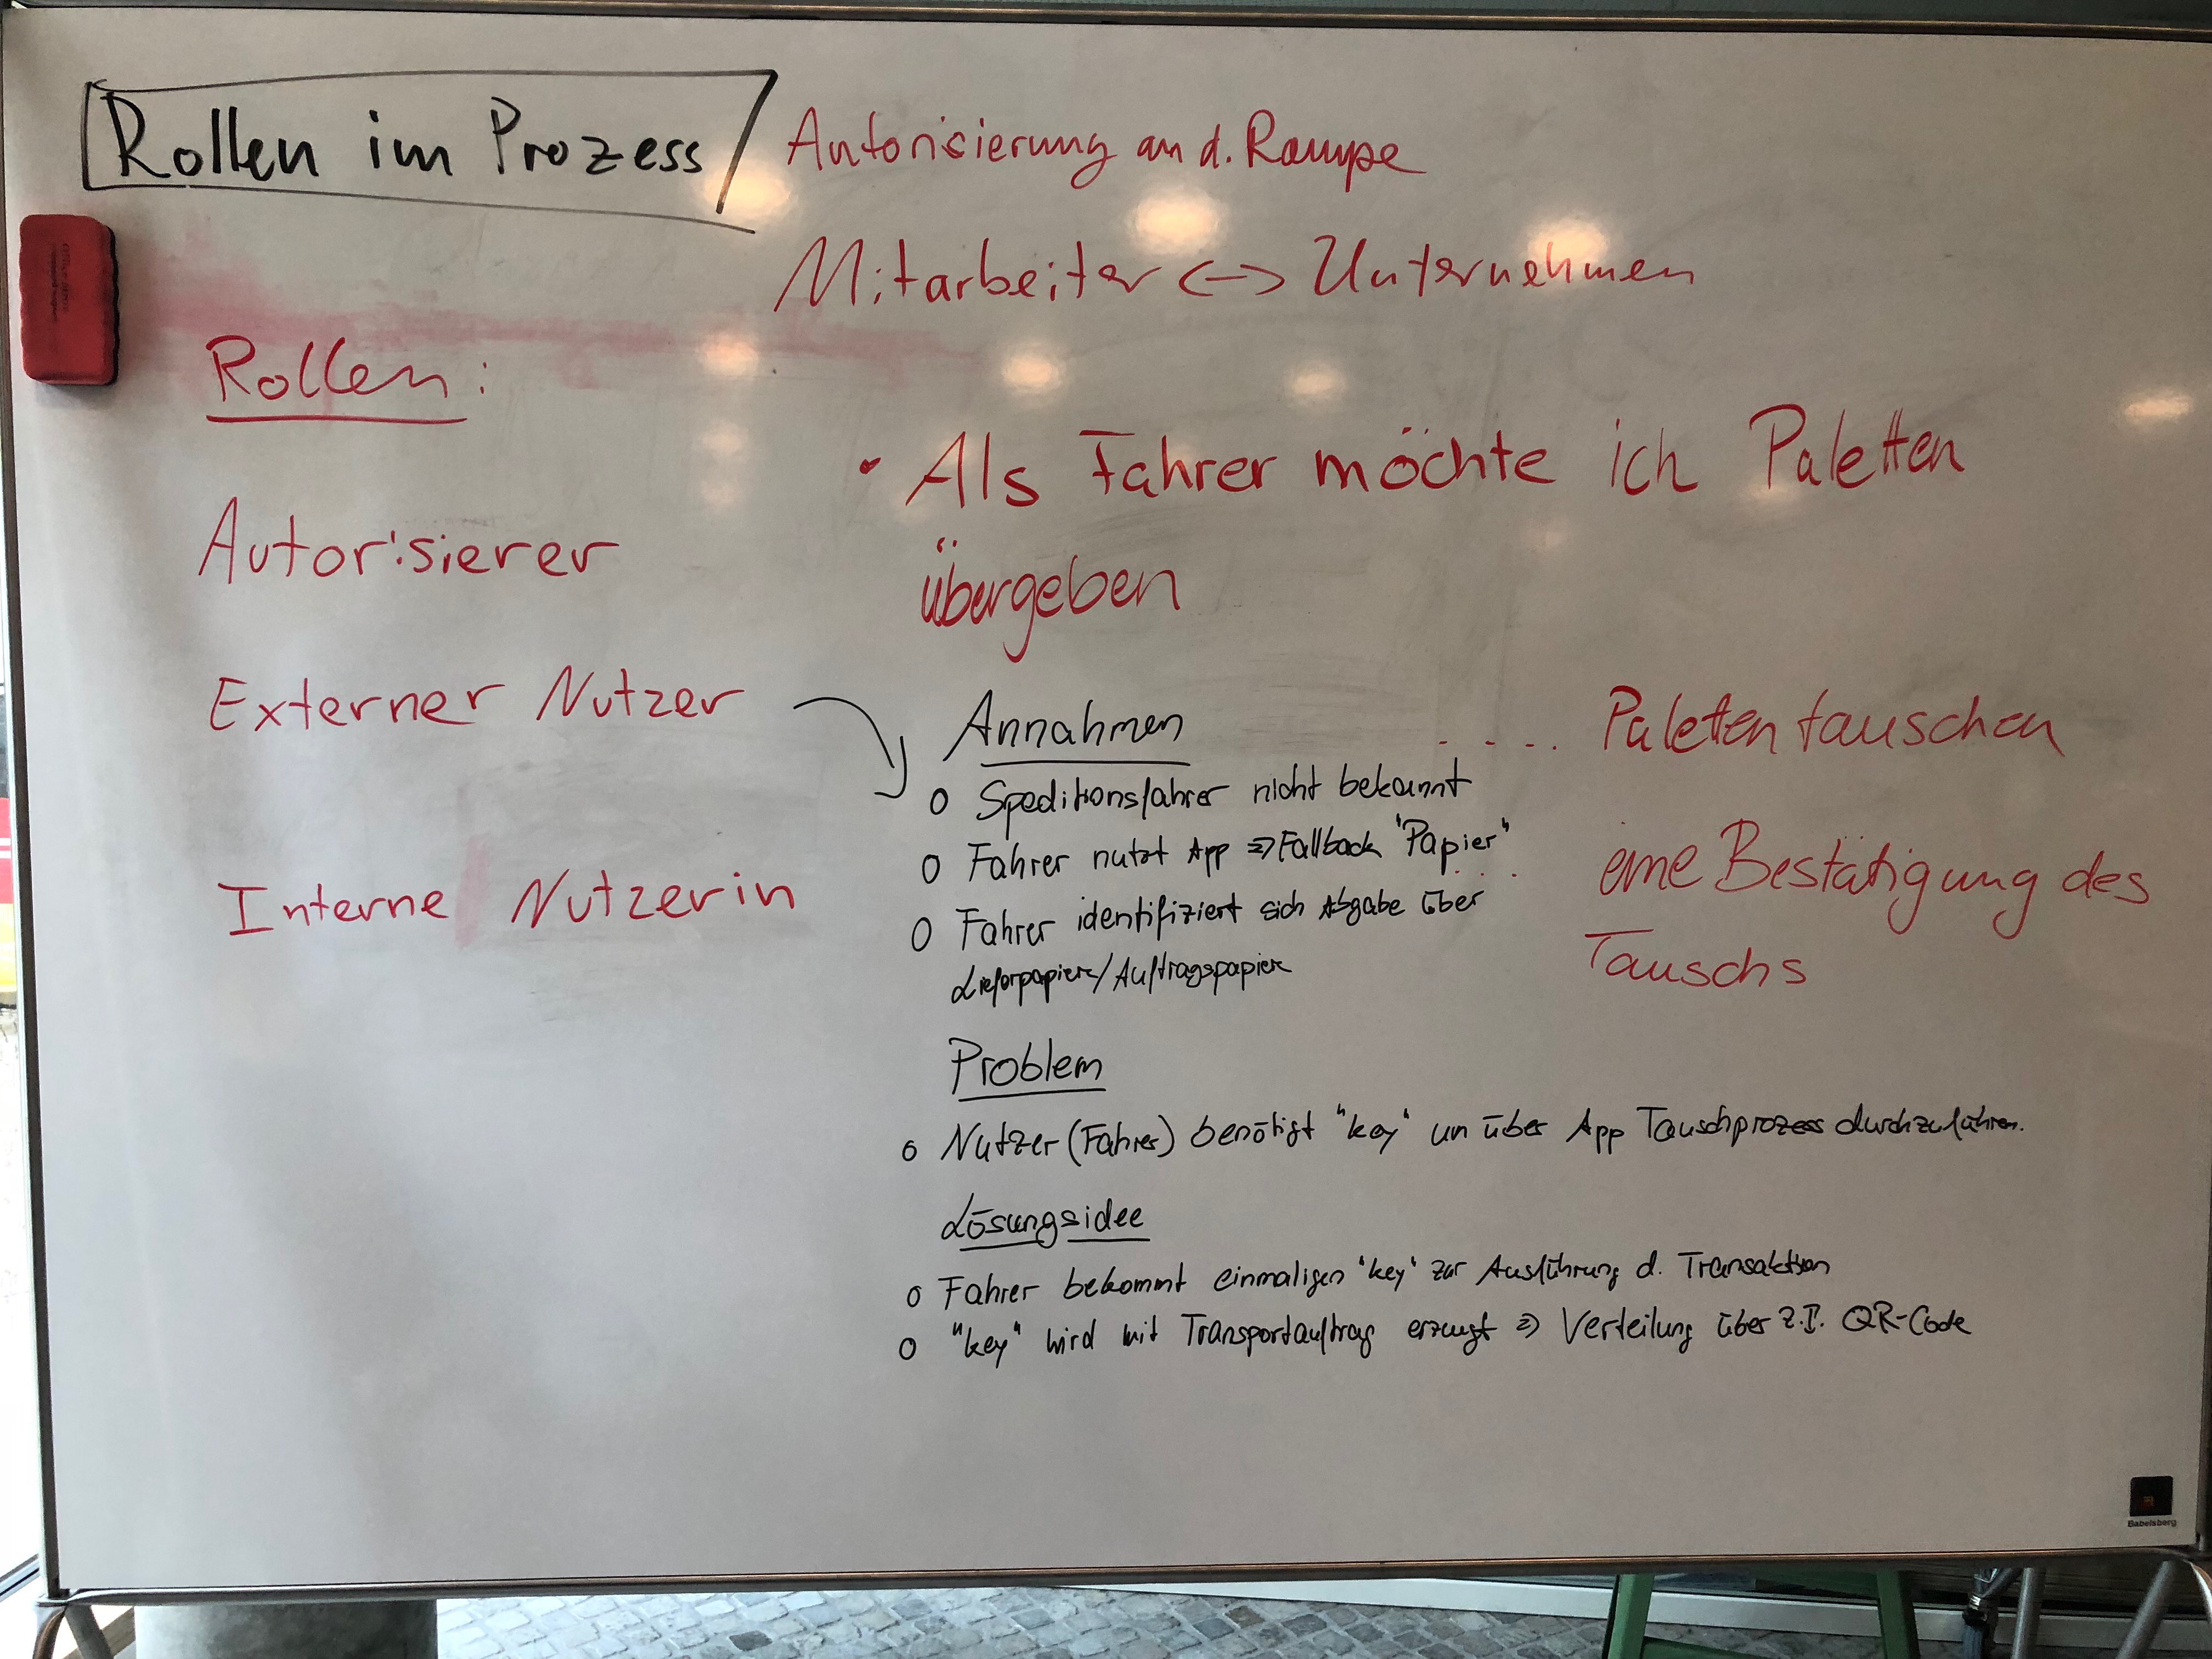 Rollen im Prozess
Autorisierung an d. Rampe
Mitarbeiter <-> Unternehmen
Rollen:
Autorisierer
Externer Nutzer
Interne Nutzerin
• Als Fahrer möchte ich Paletten
übergeben
.... Paletten tauschen
.. eine Bestätigung des
Tauschs
Annahmen
o Speditionsfahrer nicht bekannt
o Fahrer nutzt App => Fallback "Papier"
o Fahrer identifiziert sich Abgabe über
Lieferpapiere/Auftragspapiere
Problem
o Nutzer (Fahrer) benötigt "key" um über App Tauschprozess durchzuführen.
Lösungsidee
o Fahrer bekommt einmaligen "key" zur Ausführung d. Transaktion
o "key" wird mit Transportauftrag erzeugt => Verteilung über z.B. QR-Code
Babelsberg